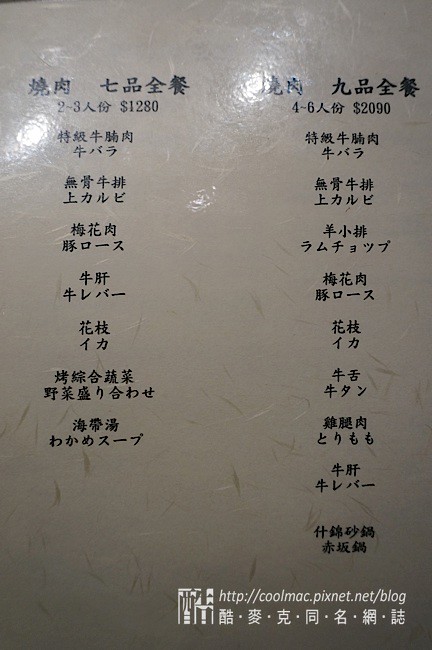 燒肉 七品全餐
2~3人份 $1280
特級牛腩肉
牛バラ
無骨牛排
上カルビ
梅花肉
豚ロース
牛肝
牛レバー
花枝
イカ
烤綜合蔬菜
野菜盛り合わせ
海帶湯
わかめスープ
燒肉 九品全餐
4~6人份 $2090
特級牛腩肉
牛バラ
無骨牛排
上カルビ
羊小排
ラムチョツプ
梅花肉
豚ロース
花枝
イカ
牛舌
牛タン
雞腿肉
とりもも
牛肝
牛レバー
什錦砂鍋
赤坂鍋
http://coolmac.pixnet.net/blog
酷·麥·克·同·名·網·誌